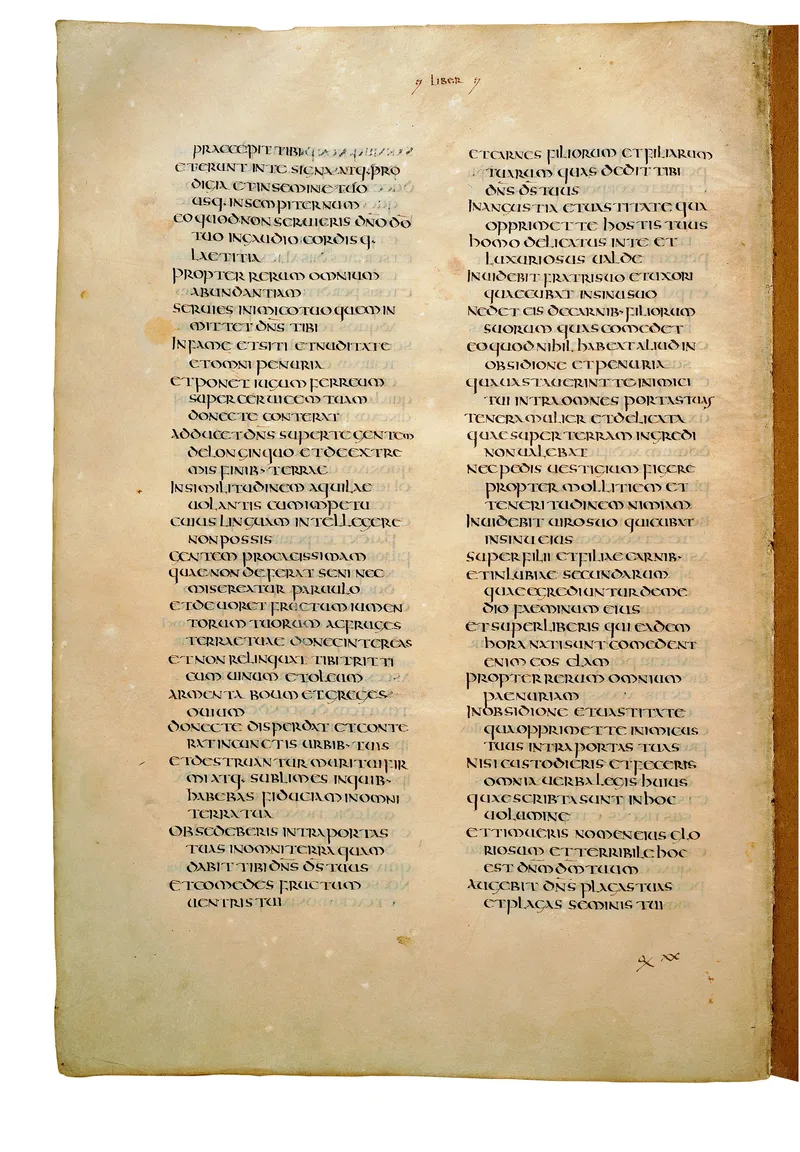 LIBER
PRAECEPIT TIBI
ET ERUNT IN TE SIGNA ATQ· PRO
DIGIA ET IN SEMINE TUO
USQ· IN SEMPITERNUM
EO QUOD NON SERUIERIS DÑO DŌ
TUO IN GAUDIO CORDISQ·
LAETITIA
PROPTER RERUM OMNIUM
ABUNDANTIAM
SERUIES INIMICO TUO QUEM IN
MITTET DÑS TIBI
IN FAME ET SITI ET NUDITATE
ET OMNI PENURIA
ET PONET IUGUM FERREUM
SUPER CERUICEM TUAM
DONEC TE CONTERAT
ADDUCET DÑS SUPER TE GENTEM
DE LONGINQUO ET DE EXTRE
MIS FINIB· TERRAE
IN SIMILITUDINEM AQUILAE
UOLANTIS CUM IMPETU
CUIUS LINGUAM INTELLEGERE
NON POSSIS
GENTEM PROCACISSIMAM
QUAE NON DEFERAT SENI NEC
MISEREATUR PARUULO
ET DEUORET FRUCTUM IUMEN
TORUM TUORUM AC FRUGES
TERRAE TUAE DONEC INTEREAS
ET NON RELINQUAT TIBI TRITI
CUM UINUM ET OLEUM
ARMENTA BOUM ET GREGES
OUIUM
DONEC TE DISPERDAT ET CONTE
RAT IN CUNCTIS URBIB· TUIS
ET DESTRUANTUR MURI TUI FIR
MI ATQ· SUBLIMES IN QUIB·
HABEBAS FIDUCIAM IN OMNI
TERRA TUA
OBSEDEBERIS INTRA PORTAS
TUAS IN OMNI TERRA QUAM
DABIT TIBI DÑS DS̄ TUUS
ET COMEDES FRUCTUM
UENTRIS TUI
ET CARNES FILIORUM ET FILIARUM
TUARUM QUAS DEDIT TIBI
DÑS DS̄ TUUS
IN ANGUSTIA ET UASTITATE QUA
OPPRIMET TE HOSTIS TUUS
HOMO DELICATUS IN TE ET
LUXURIOSUS UALDE
INUIDEBIT FRATRI SUO ET UXORI
QUAE CUBAT IN SINU SUO
NE DET EIS DE CARNIB· FILIORUM
SUORUM QUAS COMEDET
EO QUOD NIHIL HABEAT ALIUD IN
OBSIDIONE ET PENURIA
QUA UASTAUERINT TE INIMICI
TUI INTRA OMNES PORTAS TUAS
TENERA MULIER ET DELICATA
QUAE SUPER TERRAM INGREDI
NON UALEBAT
NEC PEDIS UESTIGIUM FIGERE
PROPTER MOLLITIEM ET
TENERITUDINEM NIMIAM
INUIDEBIT UIRO SUO QUI CUBAT
IN SINU EIUS
SUPER FILII ET FILIAE CARNIB·
ET INLUBIAE SECUNDARUM
QUAE EGREDIUNTUR DE ME
DIO FAEMINUM EIUS
ET SUPER LIBERIS QUI EADEM
HORA NATI SUNT COMEDENT
ENIM EOS CLAM
PROPTER RERUM OMNIUM
PAENURIAM
IN OBSIDIONE ET UASTITATE
QUA OPPRIMET TE INIMICUS
TUUS INTRA PORTAS TUAS
NISI CUSTODIERIS ET FECERIS
OMNIA UERBA LEGIS HUIUS
QUAE SCRIBTA SUNT IN HOC
UOLUMINE
ET TIMUERIS NOMEN EIUS GLO
RIOSUM ET TERRIBILE HOC
EST DÑM DM̄ TUUM
AUGEBIT DÑS PLAGAS TUAS
ET PLAGAS SEMINIS TUI
XX